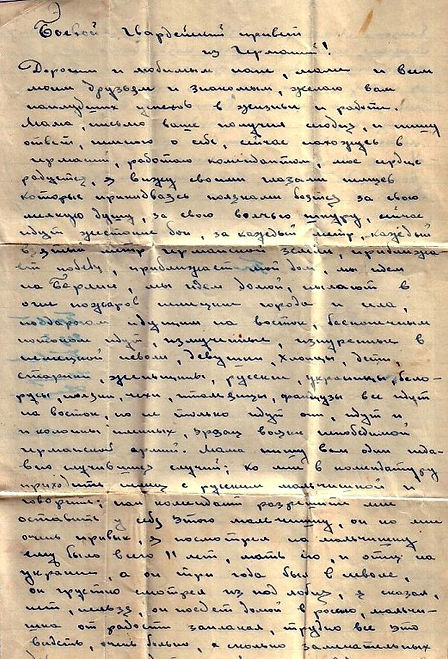 Боевой Гвардейский привет
из Германии!
Дорогим и любимым папе, маме и всем
моим друзьям и знакомым, желаю вам
наилучших успехов в жизни и работе.
Мама, письмо ваше получил сегодня, и пишу
ответ, немного о себе, сейчас нахожусь в
германии, работаю комендантом, мое сердце
радуется, я вижу своими глазами немцев
которые боязнью за свою
мелкую душу, за свою волчью шкуру, сейчас
идут жестокие бои, за каждый метр, каждый
взятый метр германской земли, приближа
ет победу, приближает мой дом, мы идем
на Берлин, мы идем домой, пылают в
огне пожаров немецкие города и села,
по дорогам идущим на восток, бесконечным
потоком идут, измученные, изнуренные в
немецкой неволе, девушки, хлопцы, дети,
старики, женщины, русские, украинцы, бело-
русы, поляки, чехи, итальянцы, французы все идут
на восток, но не только идут они, идут и
и колонны пленных, вояки непобедимой
германской армии. Мама пишу вам один неда-
вно случившийся случай; ко мне в комендатуру
приходит немец с русским мальчишкой и
говорит; пан комендант разрешите мне
оставить у себя этого мальчишку, он ко мне
очень привык, я посмотрел на мальчишку
ему было всего 11 лет, мать его, и отец на
украине, а он три года был в неволе,
он грустно смотрел из под лобья, я сказал,
нет, нельзя, он поедет домой в росию, мальчи-
шка от радости заплакал, трудно все это
видеть, очень больно, а сколько замечательных